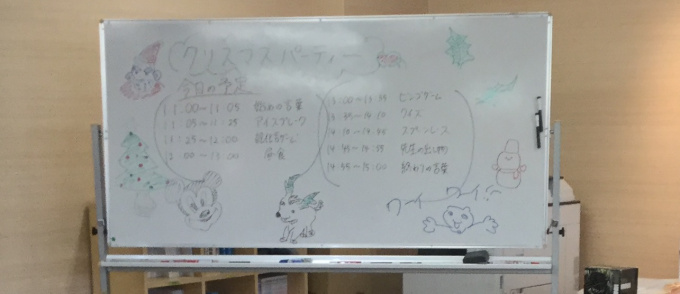 クリスマスパーティー
今日の予定
11:00～11:05 始めの言葉
11:05～11:25 アイスブレーク
11:25～12:00
12:00～13:00 昼食
13:00～13: ビンゴゲーム
13:45～14:10 クイズ
14:10～14: スプーンレース
14:45～14:55 先生の出し物
14:55～15:00 終わりの言葉
ワーイ ワーイ!!